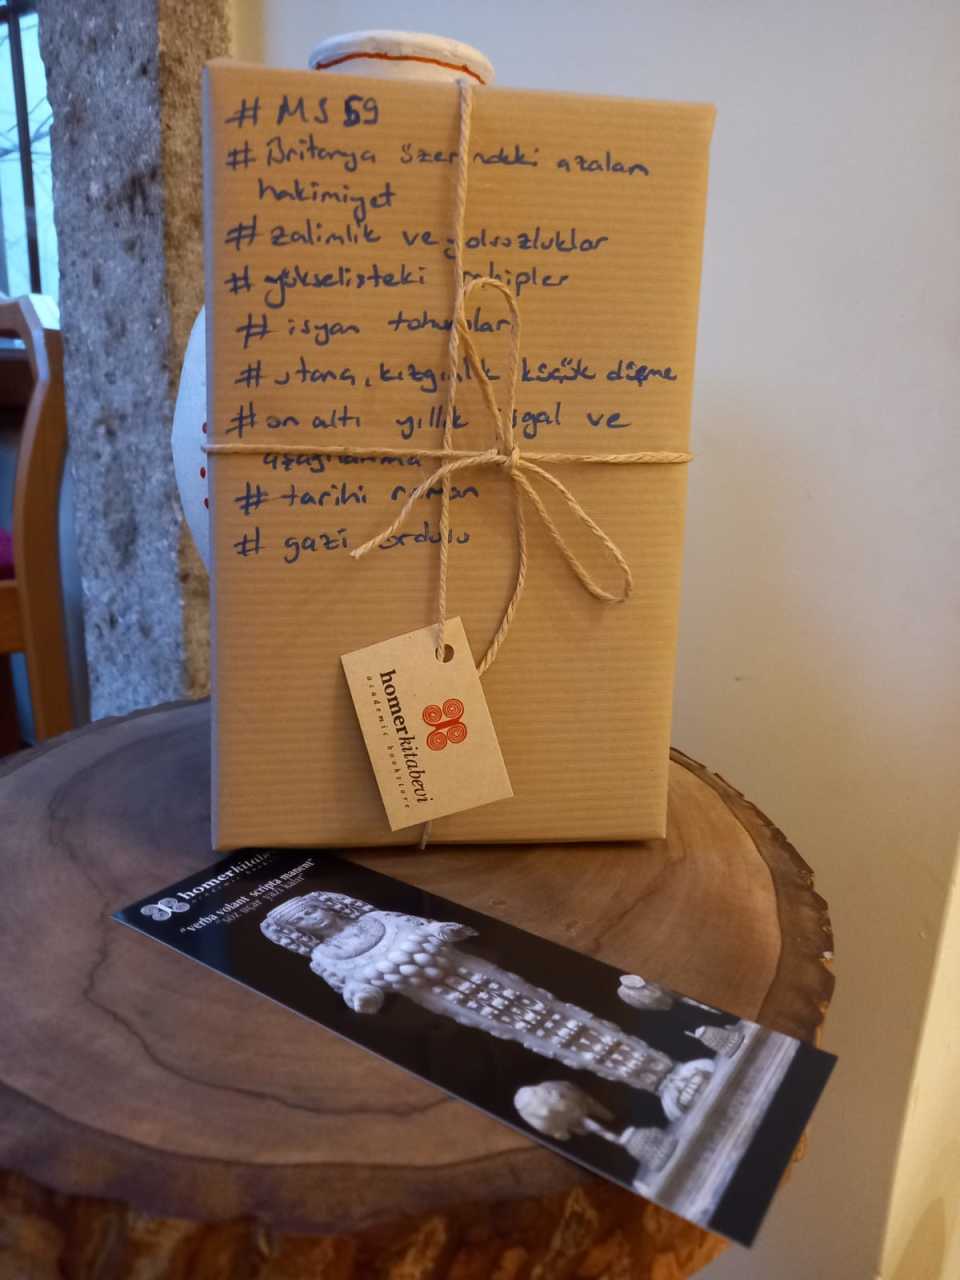 # MS 59
# Britanya üzerindeki azalan
hakimiyet
# zalimlik ve yolsuzluklar
# yükselişteki rahipler
# isyan tohumları
# utanç, kızgınlık küçük düşme
# on altı yıllık işgal ve
aşağılanma
# tarihi roman
# gazi ordulu
homerkitabevi
academic bookstore
homerkitabevi
"verba volant scripta manent"
"söz uçar yazı kalır"